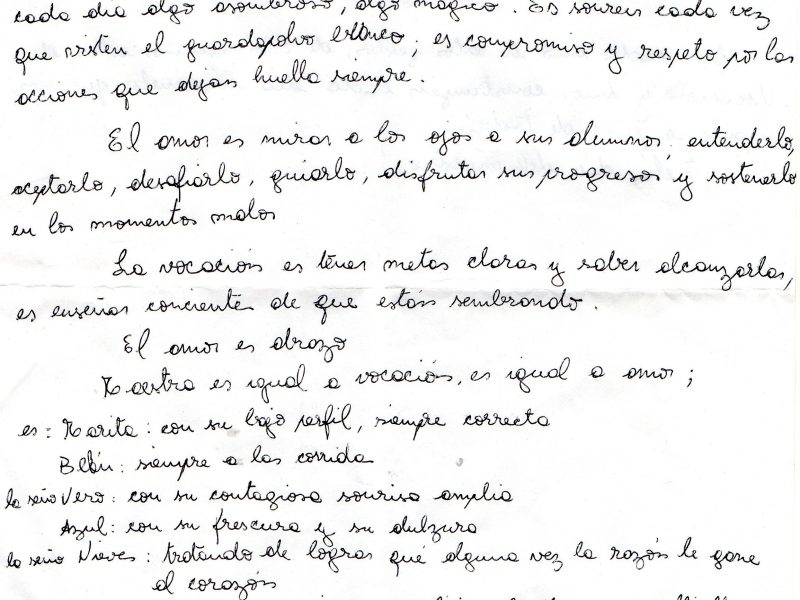 cada día algo asombroso, algo mágico. Es sonreir cada vez
que visten el guardapolvo blanco; es compromiso y respeto por las
acciones que dejan huella siempre.
El amor es mirar a los ojos a sus alumnos, entenderlo,
aceptarlo, desafiarlo, guiarlo, disfrutar sus progresos y sostenerlo
en los momentos malos
La vocación es tener metas claras y saber alcanzarlas,
es enseñar conciente de que estás sembrando.
El amor es abrazo
Maestra es igual a vocación, es igual a amor;
es: Marita: con su bajo perfil, siempre correcta
Belén: siempre a las corrida
la seño Vero: con su contagiosa sonrisa amplia
Azul: con su frescura y su dulzura
la seño Nieves: tratando de lograr qué alguna vez la razón le gane
al corazón